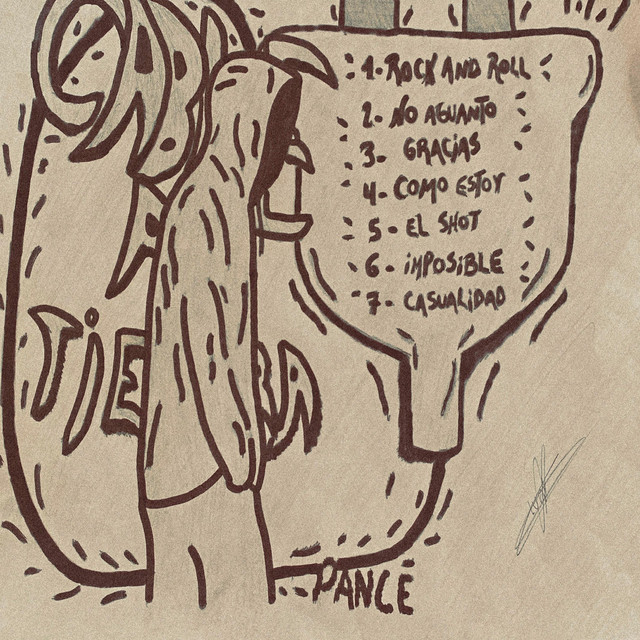 1- ROCK AND ROLL
2- NO AGUANTO
3- GRACIAS
4- COMO ESTOY
5- EL SHOT
6- IMPOSIBLE
7- CASUALIDAD
DANCE